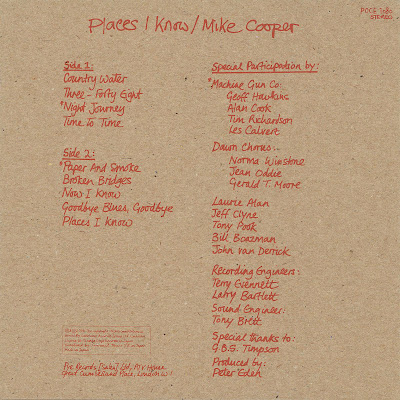 Places I Know / Mike Cooper
STEREO
Side 1:
Country Water
Three - Forty Eight
*Night Journey
Time to Time
Side 2:
*Paper And Smoke
Broken Bridges
Now I Know
Goodbye Blues, Goodbye
Places I Know
Special Participation by:
*Machine Gun Co:
Geoff Hawkins
Alan Cook
Tim Richardson
Les Calvert
Dawn Chorus:-
Norma Winstone
Jean Oddie
Gerald T. Moore
Laurie Alan
Jeff Clyne
Tony Pook
Bill Boazman
John van Derrick
Recording Engineers:
Terry Evennett
Larry Bartlett
Sound Engineer:
Tony Brett
Special thanks to:
G.B.S. Timpson
Produced by:
Peter Eden
Pye Records (Sales) Ltd, ATV House
Great Cumberland Place, London W1